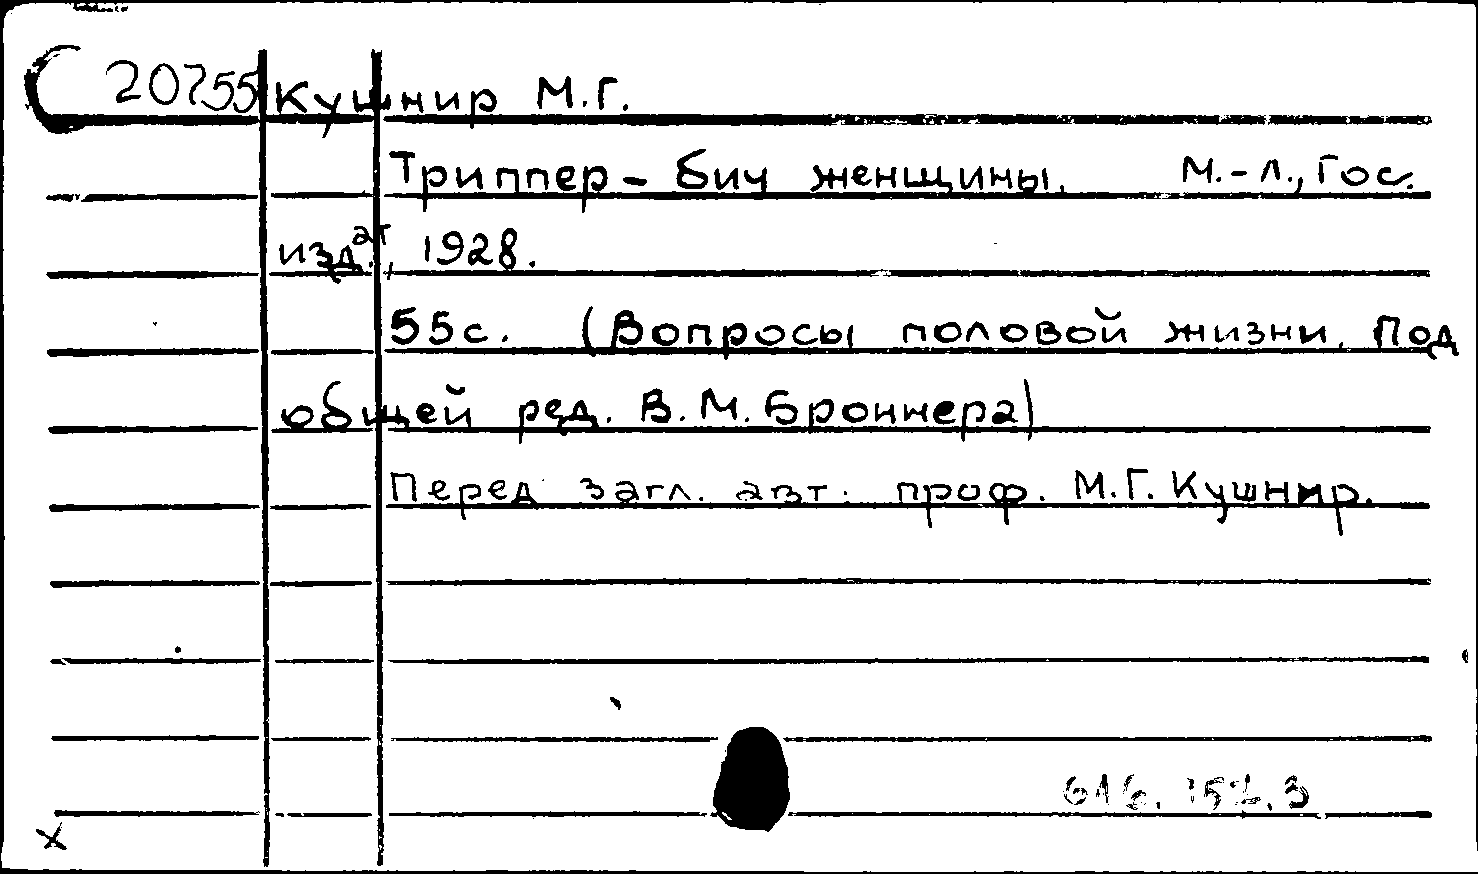 20755 Кушнир М.Г.
Триппер - бич женщины. М.-Л., Гос.
изд.ат, 1928.
55с. (Вопросы половой жизни. Под
общей ред. В.М. Броннера)
Перед загл. авт.: проф. М.Г. Кушнир.
616.
x